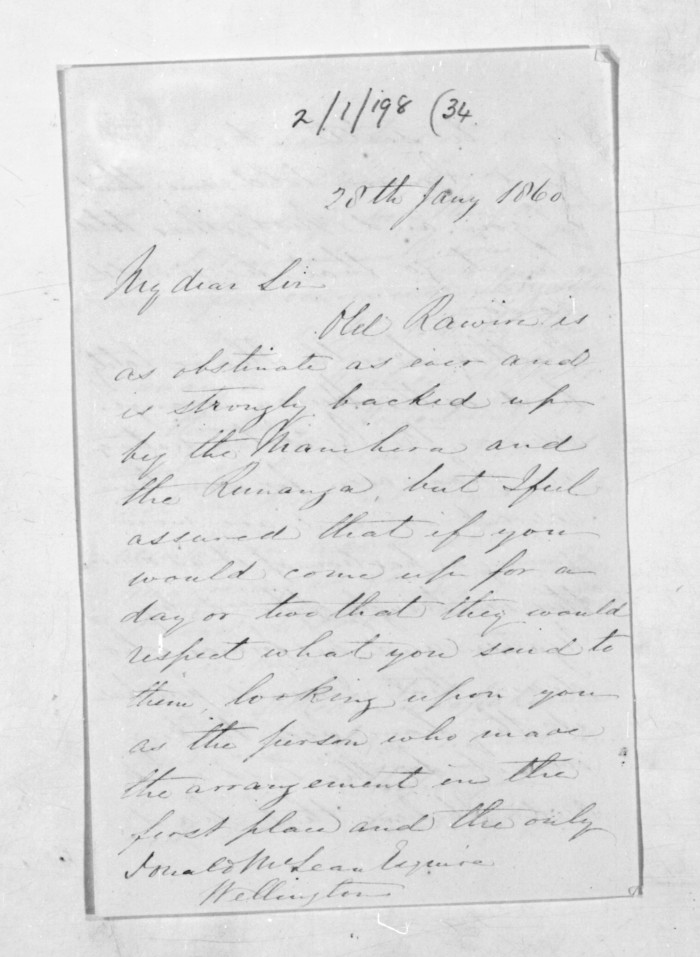 2/1/198 (34
28th Jany 1860
My dear Sir
Old Rawiri is
as obstinate as ever and
is strongly backed up
by the Manihera and
the Runanga, but I feel
assured that if you
would come up for a
day or two that they would
respect what you said to
them, looking upon you
as the person who made
the arrangement in the
first place and the only
Donald McLean Esquire
Wellington